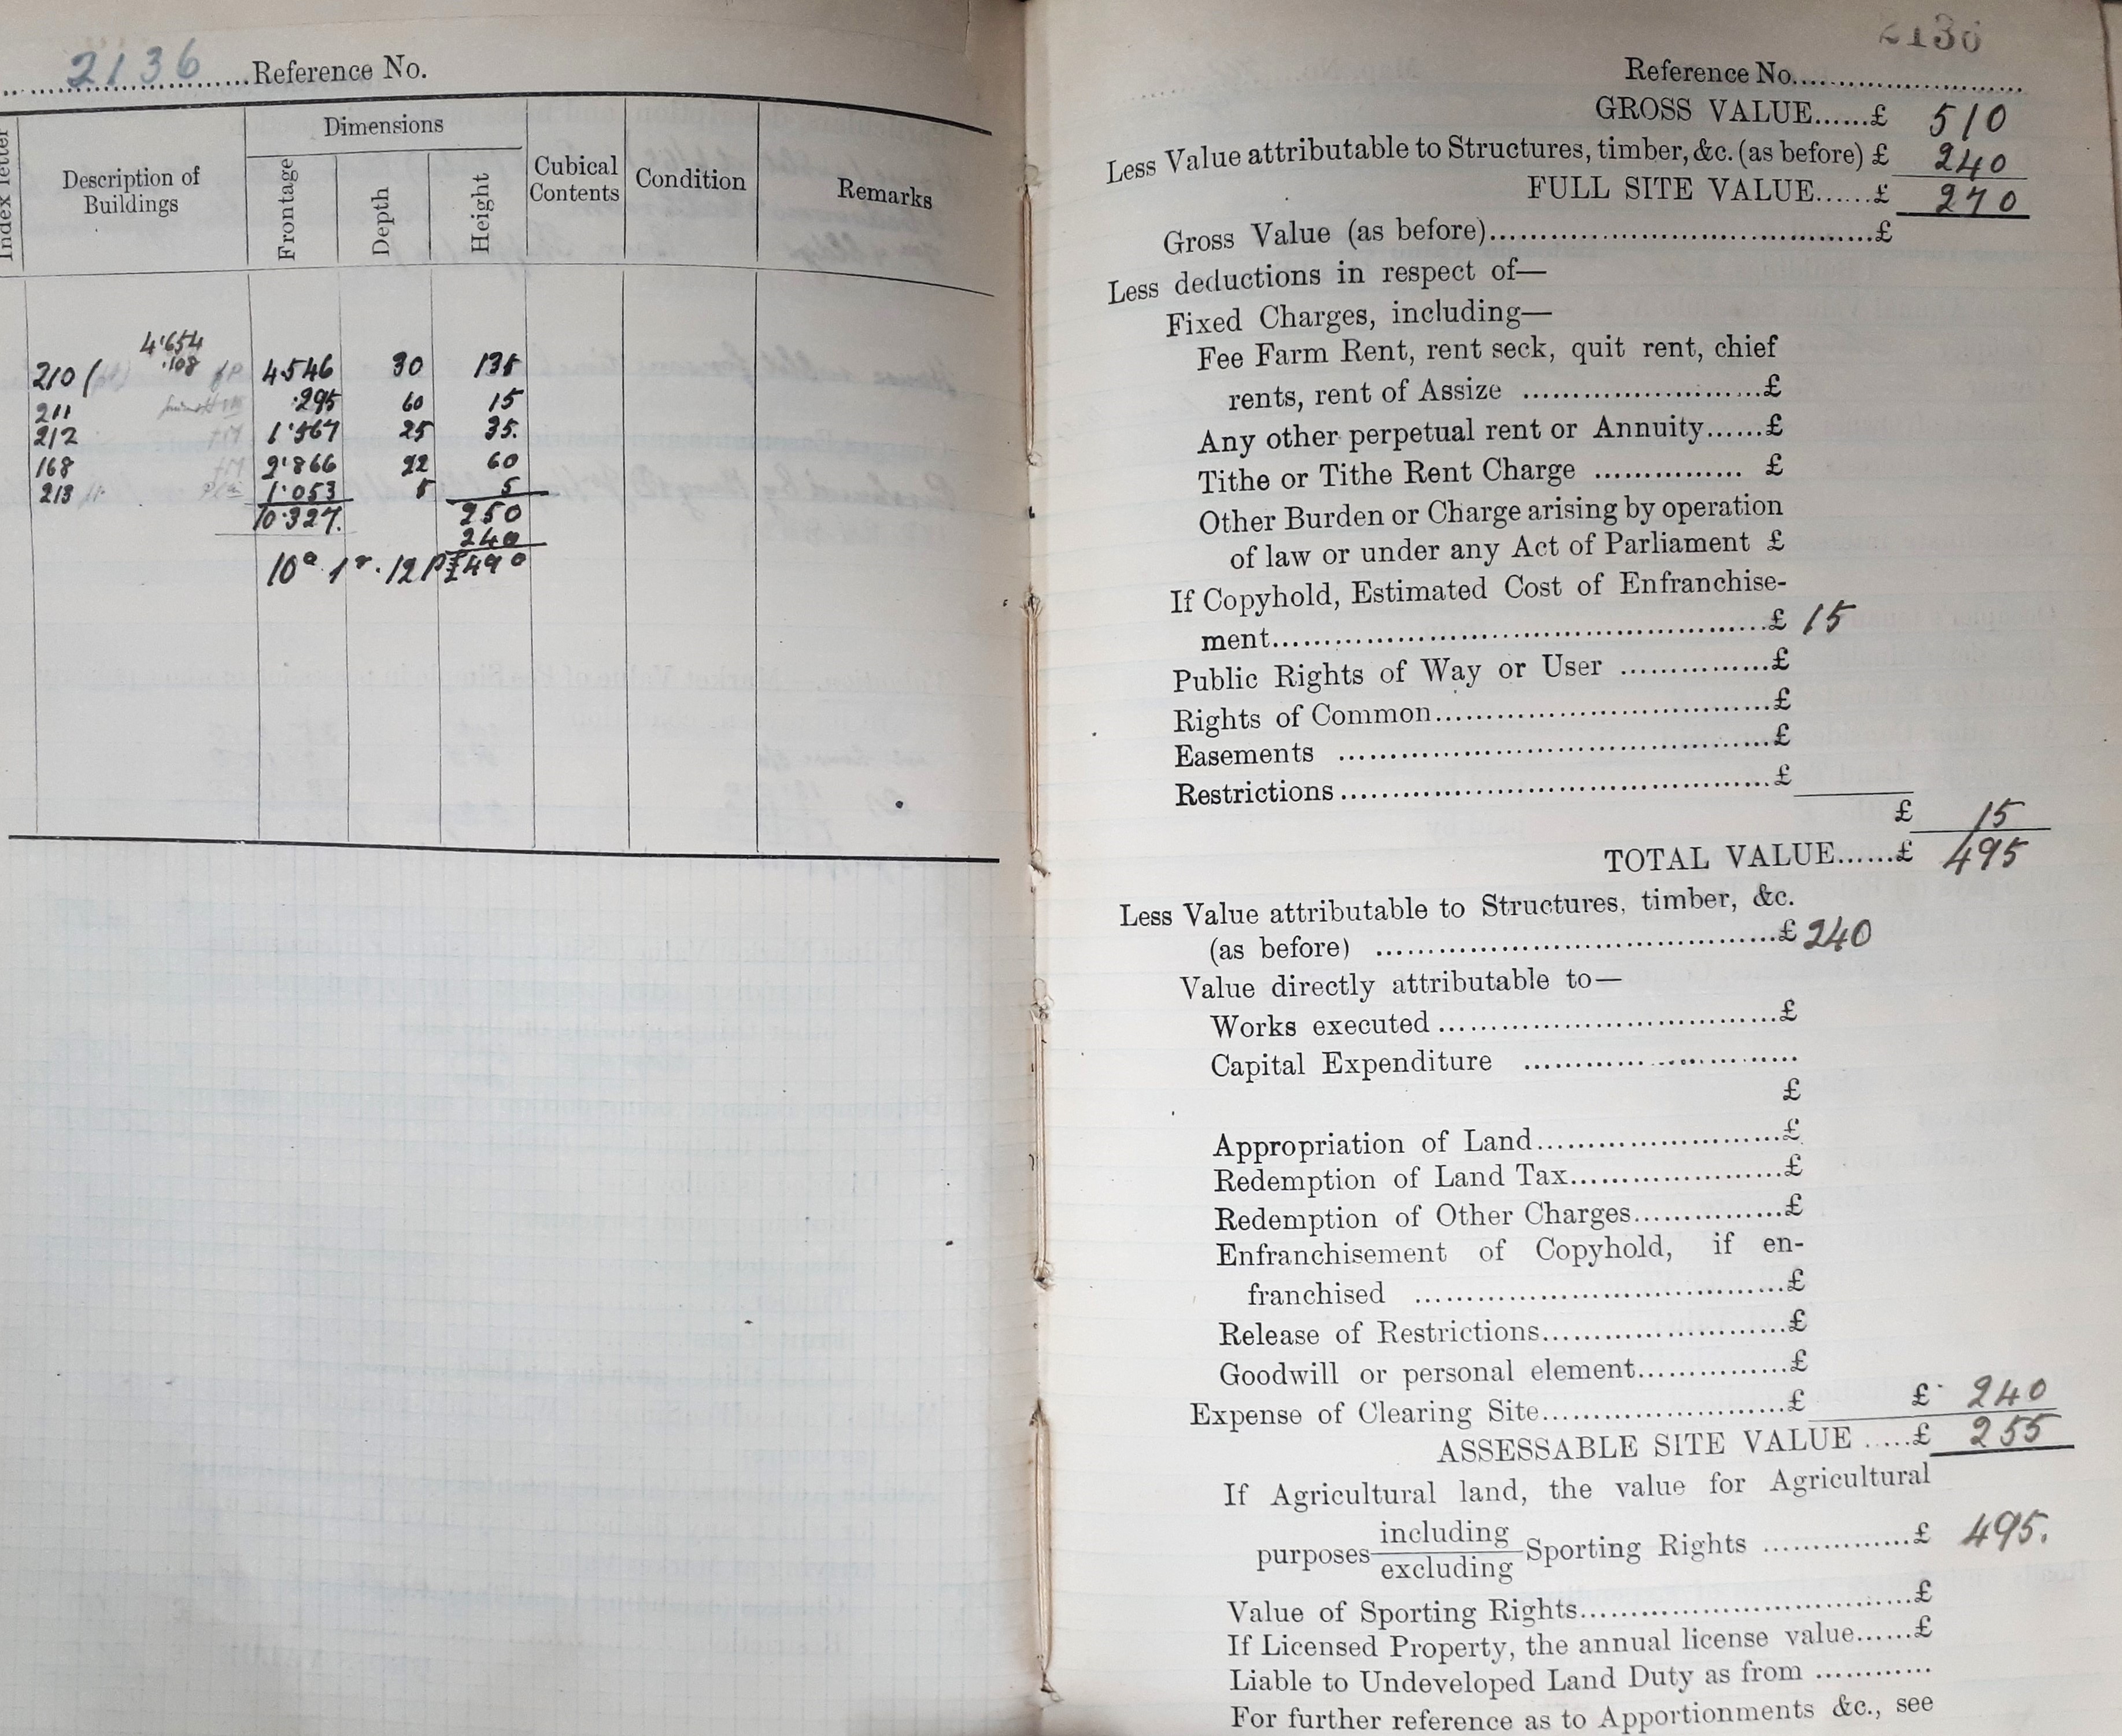 2136 Reference No.
Index letter
Description of Buildings
Dimensions
Frontage
Depth
Height
Cubical Contents
Condition
Remarks
4.654
.108
210 (pt) 4.546 30 135
211 .295 60 15
212 1.567 25 35.
168 2.866 22 60
213 pt 1.053 5 5
10.327. 250
240
10a 1r. 12 P £490
2136
Reference No.
GROSS VALUE......£ 510
Less Value attributable to Structures, timber, &c. (as before) £ 240
FULL SITE VALUE......£ 270
Gross Value (as before)......£
Less deductions in respect of—
Fixed Charges, including—
Fee Farm Rent, rent seck, quit rent, chief
rents, rent of Assize ......£
Any other perpetual rent or Annuity......£
Tithe or Tithe Rent Charge ...... £
Other Burden or Charge arising by operation
of law or under any Act of Parliament £
If Copyhold, Estimated Cost of Enfranchise-
ment......£ 15
Public Rights of Way or User ......£
Rights of Common......£
Easements ......£
Restrictions......£
£ 15
TOTAL VALUE......£ 495
Less Value attributable to Structures, timber, &c.
(as before) ......£ 240
Value directly attributable to—
Works executed ......£
Capital Expenditure ......
£
Appropriation of Land......£
Redemption of Land Tax......£
Redemption of Other Charges......£
Enfranchisement of Copyhold, if en-
franchised ......£
Release of Restrictions......£
Goodwill or personal element......£
Expense of Clearing Site......£ £ 240
ASSESSABLE SITE VALUE .....£ 255
If Agricultural land, the value for Agricultural
purposes including excluding Sporting Rights ......£ 495.
Value of Sporting Rights......£
If Licensed Property, the annual license value......£
Liable to Undeveloped Land Duty as from ......
For further reference as to Apportionments &c., see